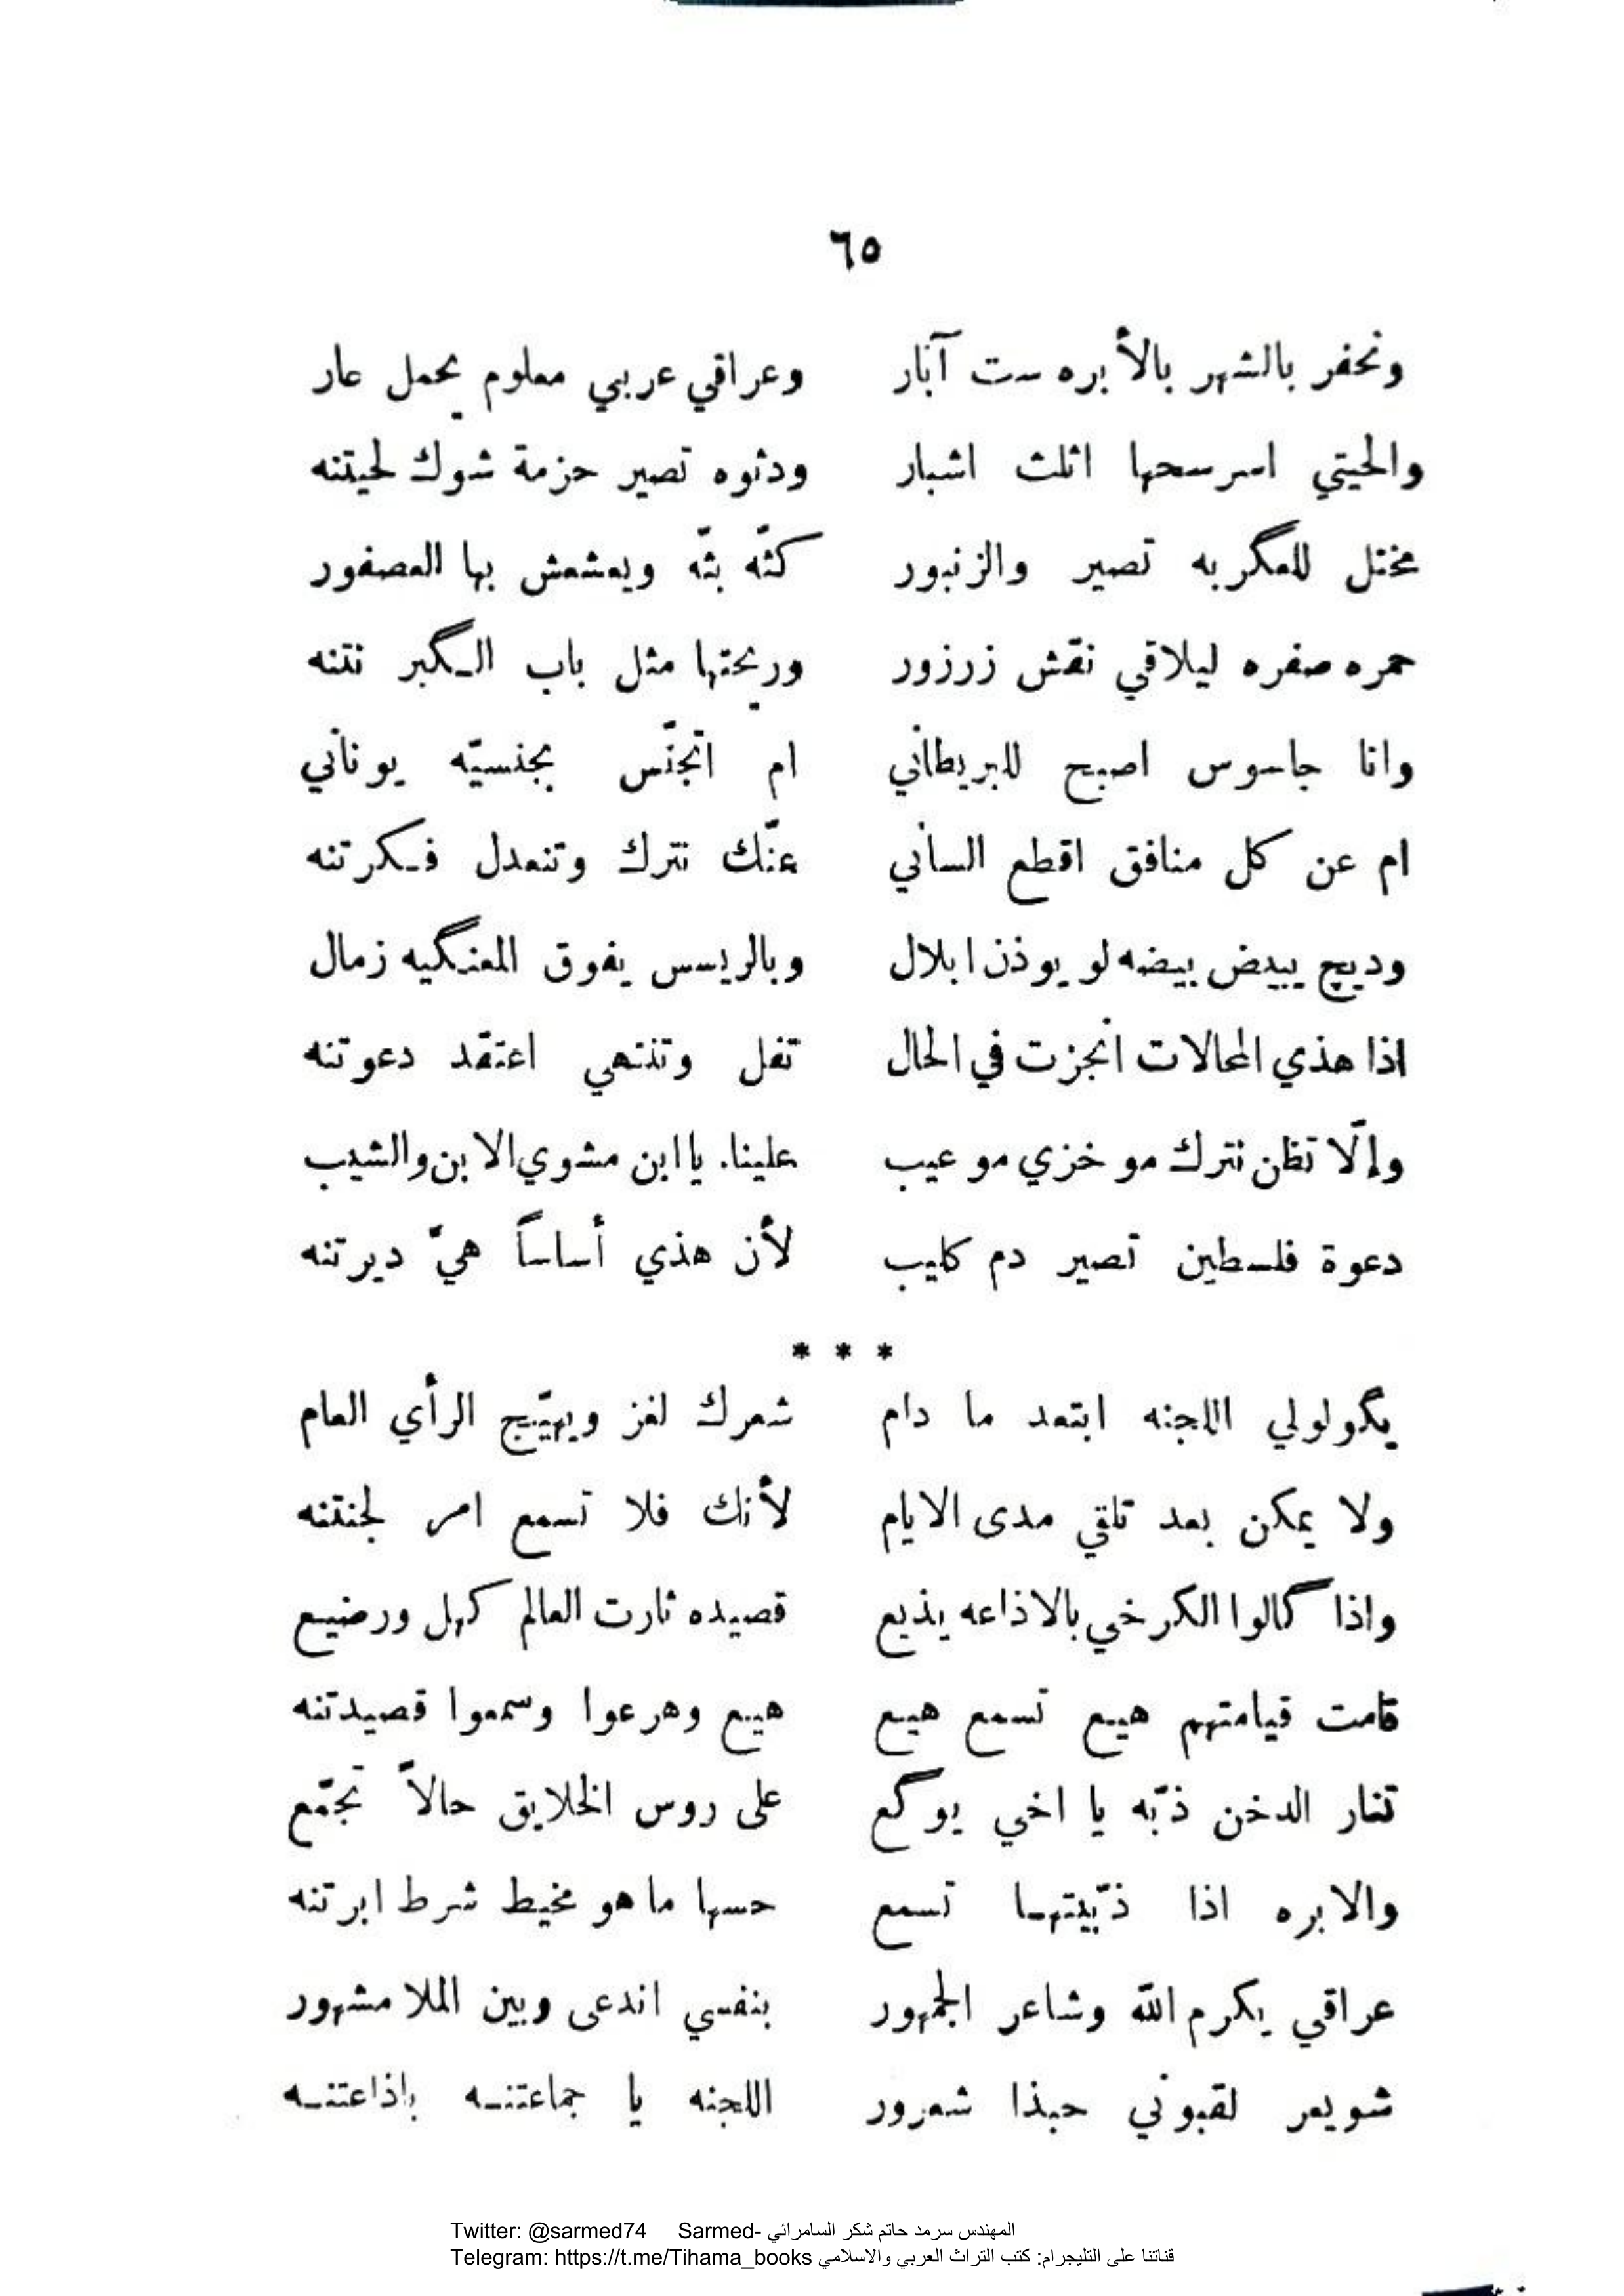 ٦٥
ونحفر بالشهر بالأبره ست آبار وعراقي عربي معلوم يحمل عار
والحيتي اسرسحها اثلث اشبار ودثوه تصير حزمة شوك لحيتنه
مختل للعگربه تصير والزنبور كثّه بثّه ويعشعش بها العصفور
حمره صفره ليلاقي نقش زرزور وريحتها مثل باب الگبر نتنه
وانا جاسوس اصبح للبريطاني ام اتجنّس بجنسيّه يوناني
ام عن كل منافق اقطع الساني عنّك نترك وتنعدل فكرتنه
وديچ يبيض بيضه لو يوذن ابلال وبالريسس يفوق المعنگيه زمال
اذا هذي المحالات انجزت في الحال تفل وتنتهي اعتقد دعوتنه
وإلّا تظن نترك مو خزي مو عيب علينا. يا ابن مشوي الابن والشيب
دعوة فلسطين تصير دم كليب لأن هذي أساساً هيّ ديرتنه
* * *
يگولولي اللجنه ابتعد ما دام شعرك لغز ويهيّج الرأي العام
ولا يمكن بعد تلقي مدى الايام لأنك فلا تسمع امر لجنتنه
واذا گالوا الكرخي بالاذاعه يذيع قصيده ثارت العالم كهل ورضيع
قامت قيامتهم هيع تسمع هيع هيع وهرعوا وسمعوا قصيدتنه
تغار الدخن ذبّه يا اخي يوگع على روس الخلايق حالاً تجمّع
والابره اذا ذبّيتها تسمع حسها ما هو مخيط شرط ابرتنه
عراقي يكرم الله وشاعر الجمهور بنفسي اندعى وبين الملا مشهور
شويعر لقبوني حبذا شعرور اللجنه يا جماعتنه باذاعتنه
Twitter: @sarmed74 Sarmed- المهندس سرمد حاتم شكر السامرائي
Telegram: https://t.me/Tihama_books قناتنا على التليجرام: كتب التراث العربي والاسلامي